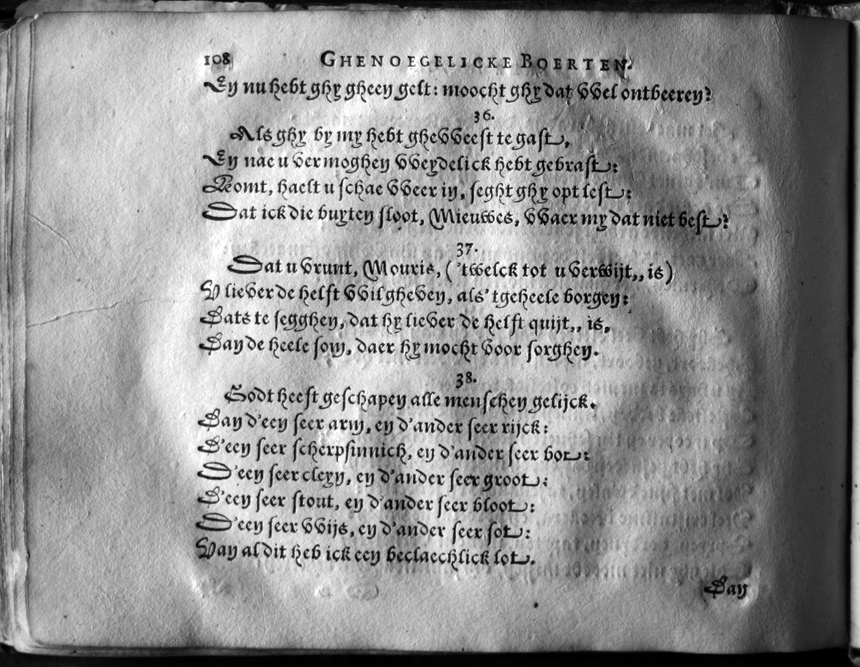 108 GHENOEGELICKE BOERTEN.
En nu hebt ghy gheen gelt: moocht ghy dat VVel ontbeeren?
36.
Als ghy by my hebt gheVVeest te gast,
En nae u vermoghen VVeydelick hebt gebrast:
Komt, haelt u schae VVeer in, seght ghy opt lest:
Dat ick die buyten sloot, Mieuwes, VVaer my dat niet best?
37.
Dat u vrunt, Mouris, ('twelck tot u verwijt,, is)
V liever de helft VVil gheven, als 'tgeheele borgen:
Dats te segghen, dat hy liever de helft quijt,, is,
Dan de heele som, daer hy mocht voor sorghen.
38.
Godt heeft geschapen alle menschen gelijck.
Dan d'een seer arm, en d'ander seer rijck:
D'een seer scherpsinnich, en d'ander seer bot:
D'een seer cleyn, en d'ander seer groot:
D'een seer stout, en d'ander seer bloot:
D'een seer VVijs, en d'ander seer sot:
Van al dit heb ick een beclaechlick lot.
Dan